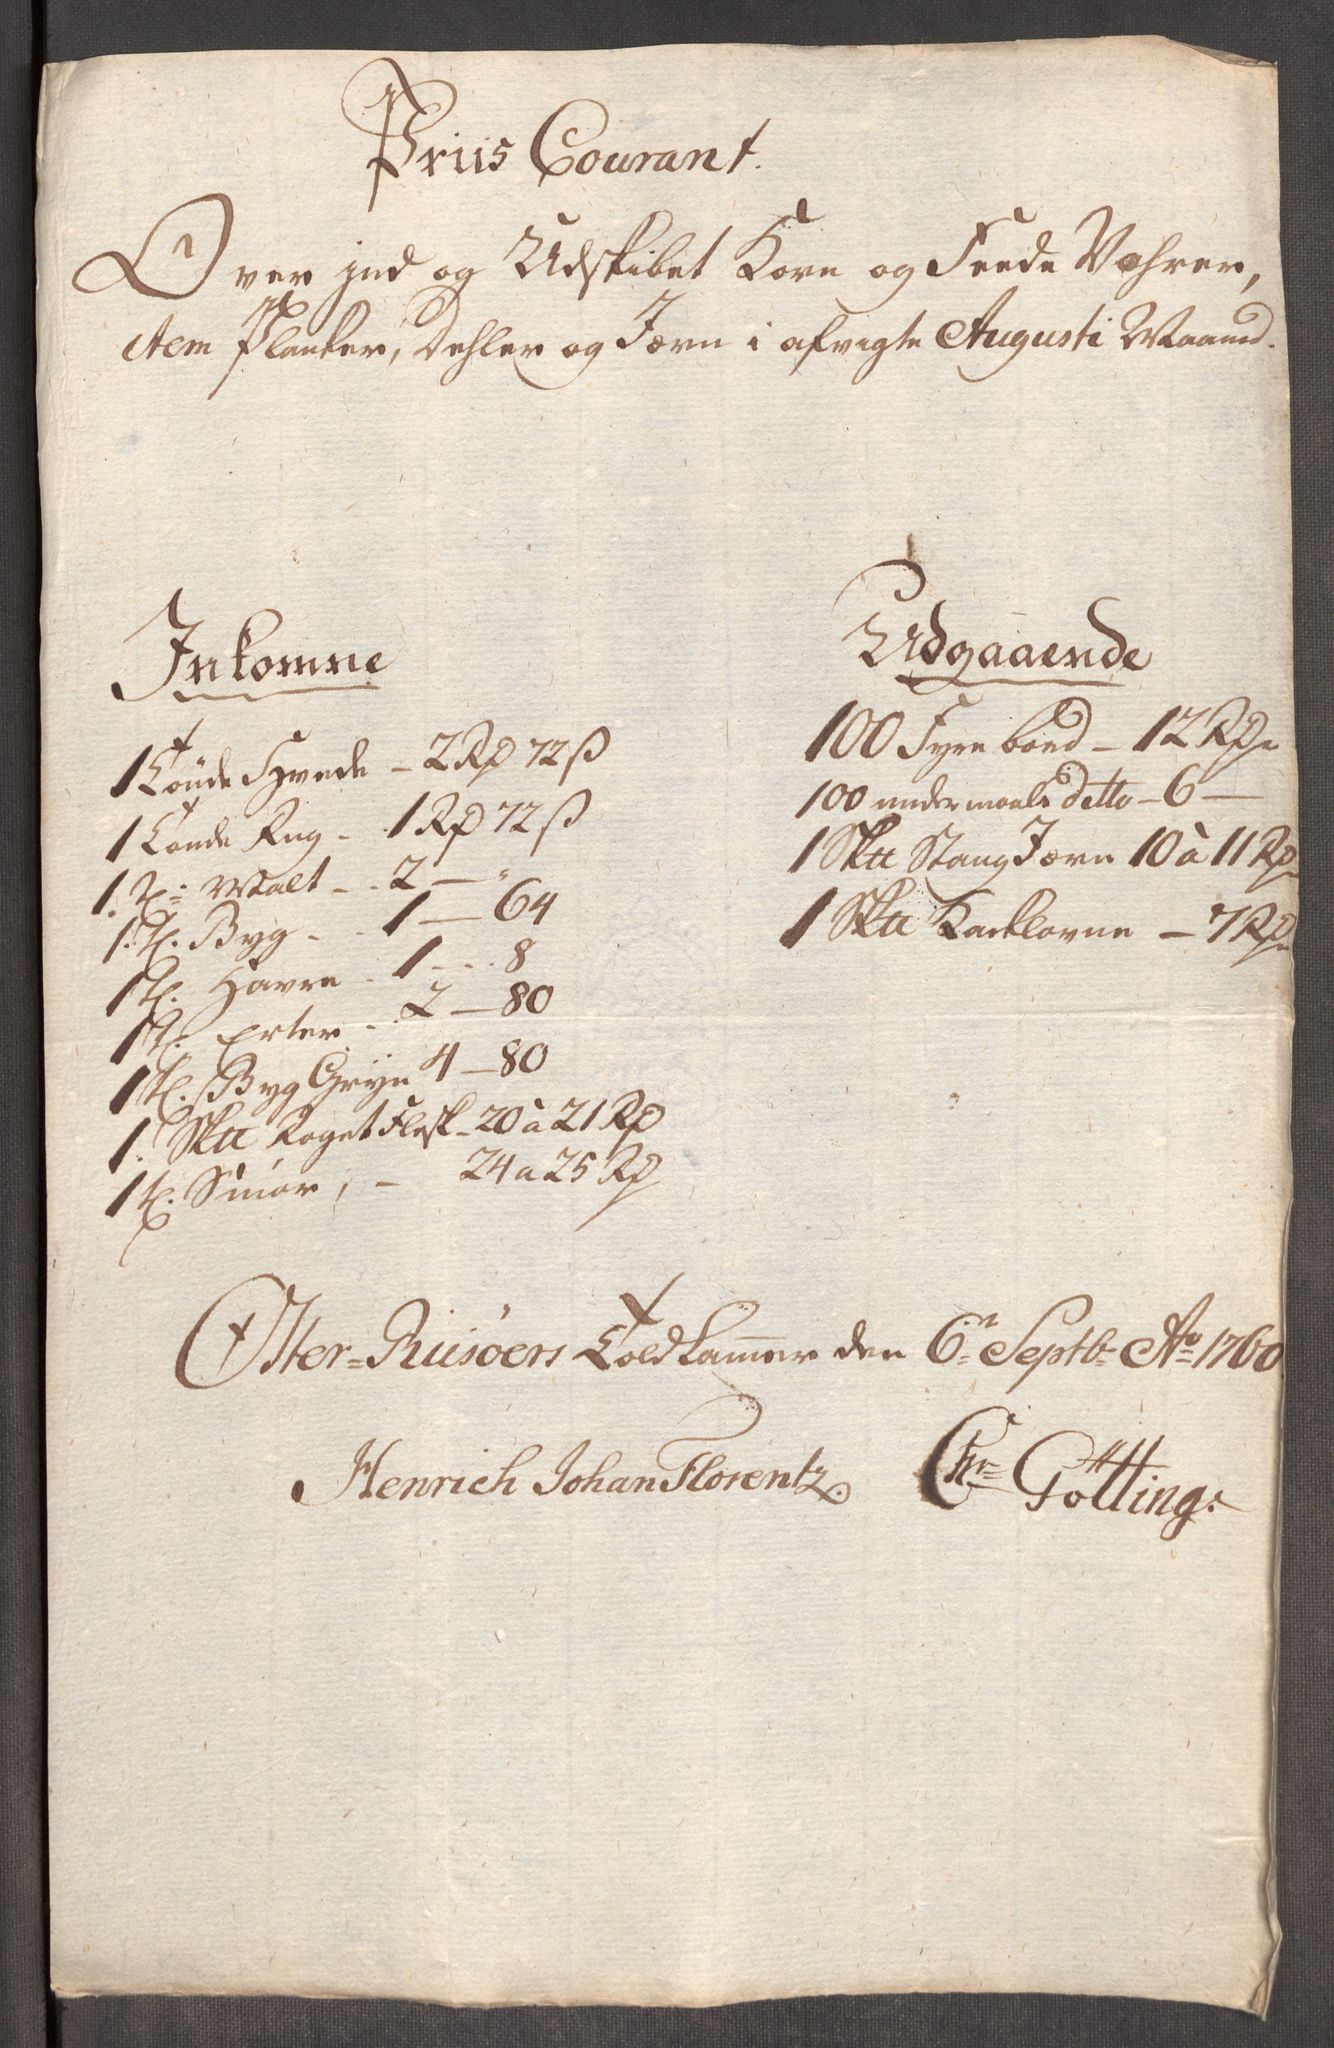 Priis Courant.
Over jnd og Udskibet Korn og Feede Vahrer,
item Planker, Dehler og Jærn i afvigte Augusti Maaned.
Inkomne
1 Tönde Hvede - 2 Rd 72 ß
1 Tönde Rug - 1 Rd 72 ß
1. T: Malt - 2 - "
1. T. Byg - 1 - 64
1 T. Havre - 1 - 8
1 T. Erter - 2 - 80
1 T. Byg Gryn 4 - 80
1. Sktt Roget Flesk - 20 à 21 Rd
1 T. Smör, - 24 a 25 Rd
Udgaaende
100 Fyre bord - 12 Rd
100 undermaals detto - 6 -
1 Sktt Stang Jærn 10 à 11 Rd
1 Sktt Kacklovne - 7 Rd
Öster-Riisöers Toldkammer den 6n Septbr Ao 1760
Henrich Johan Florentz. Chr Götting.